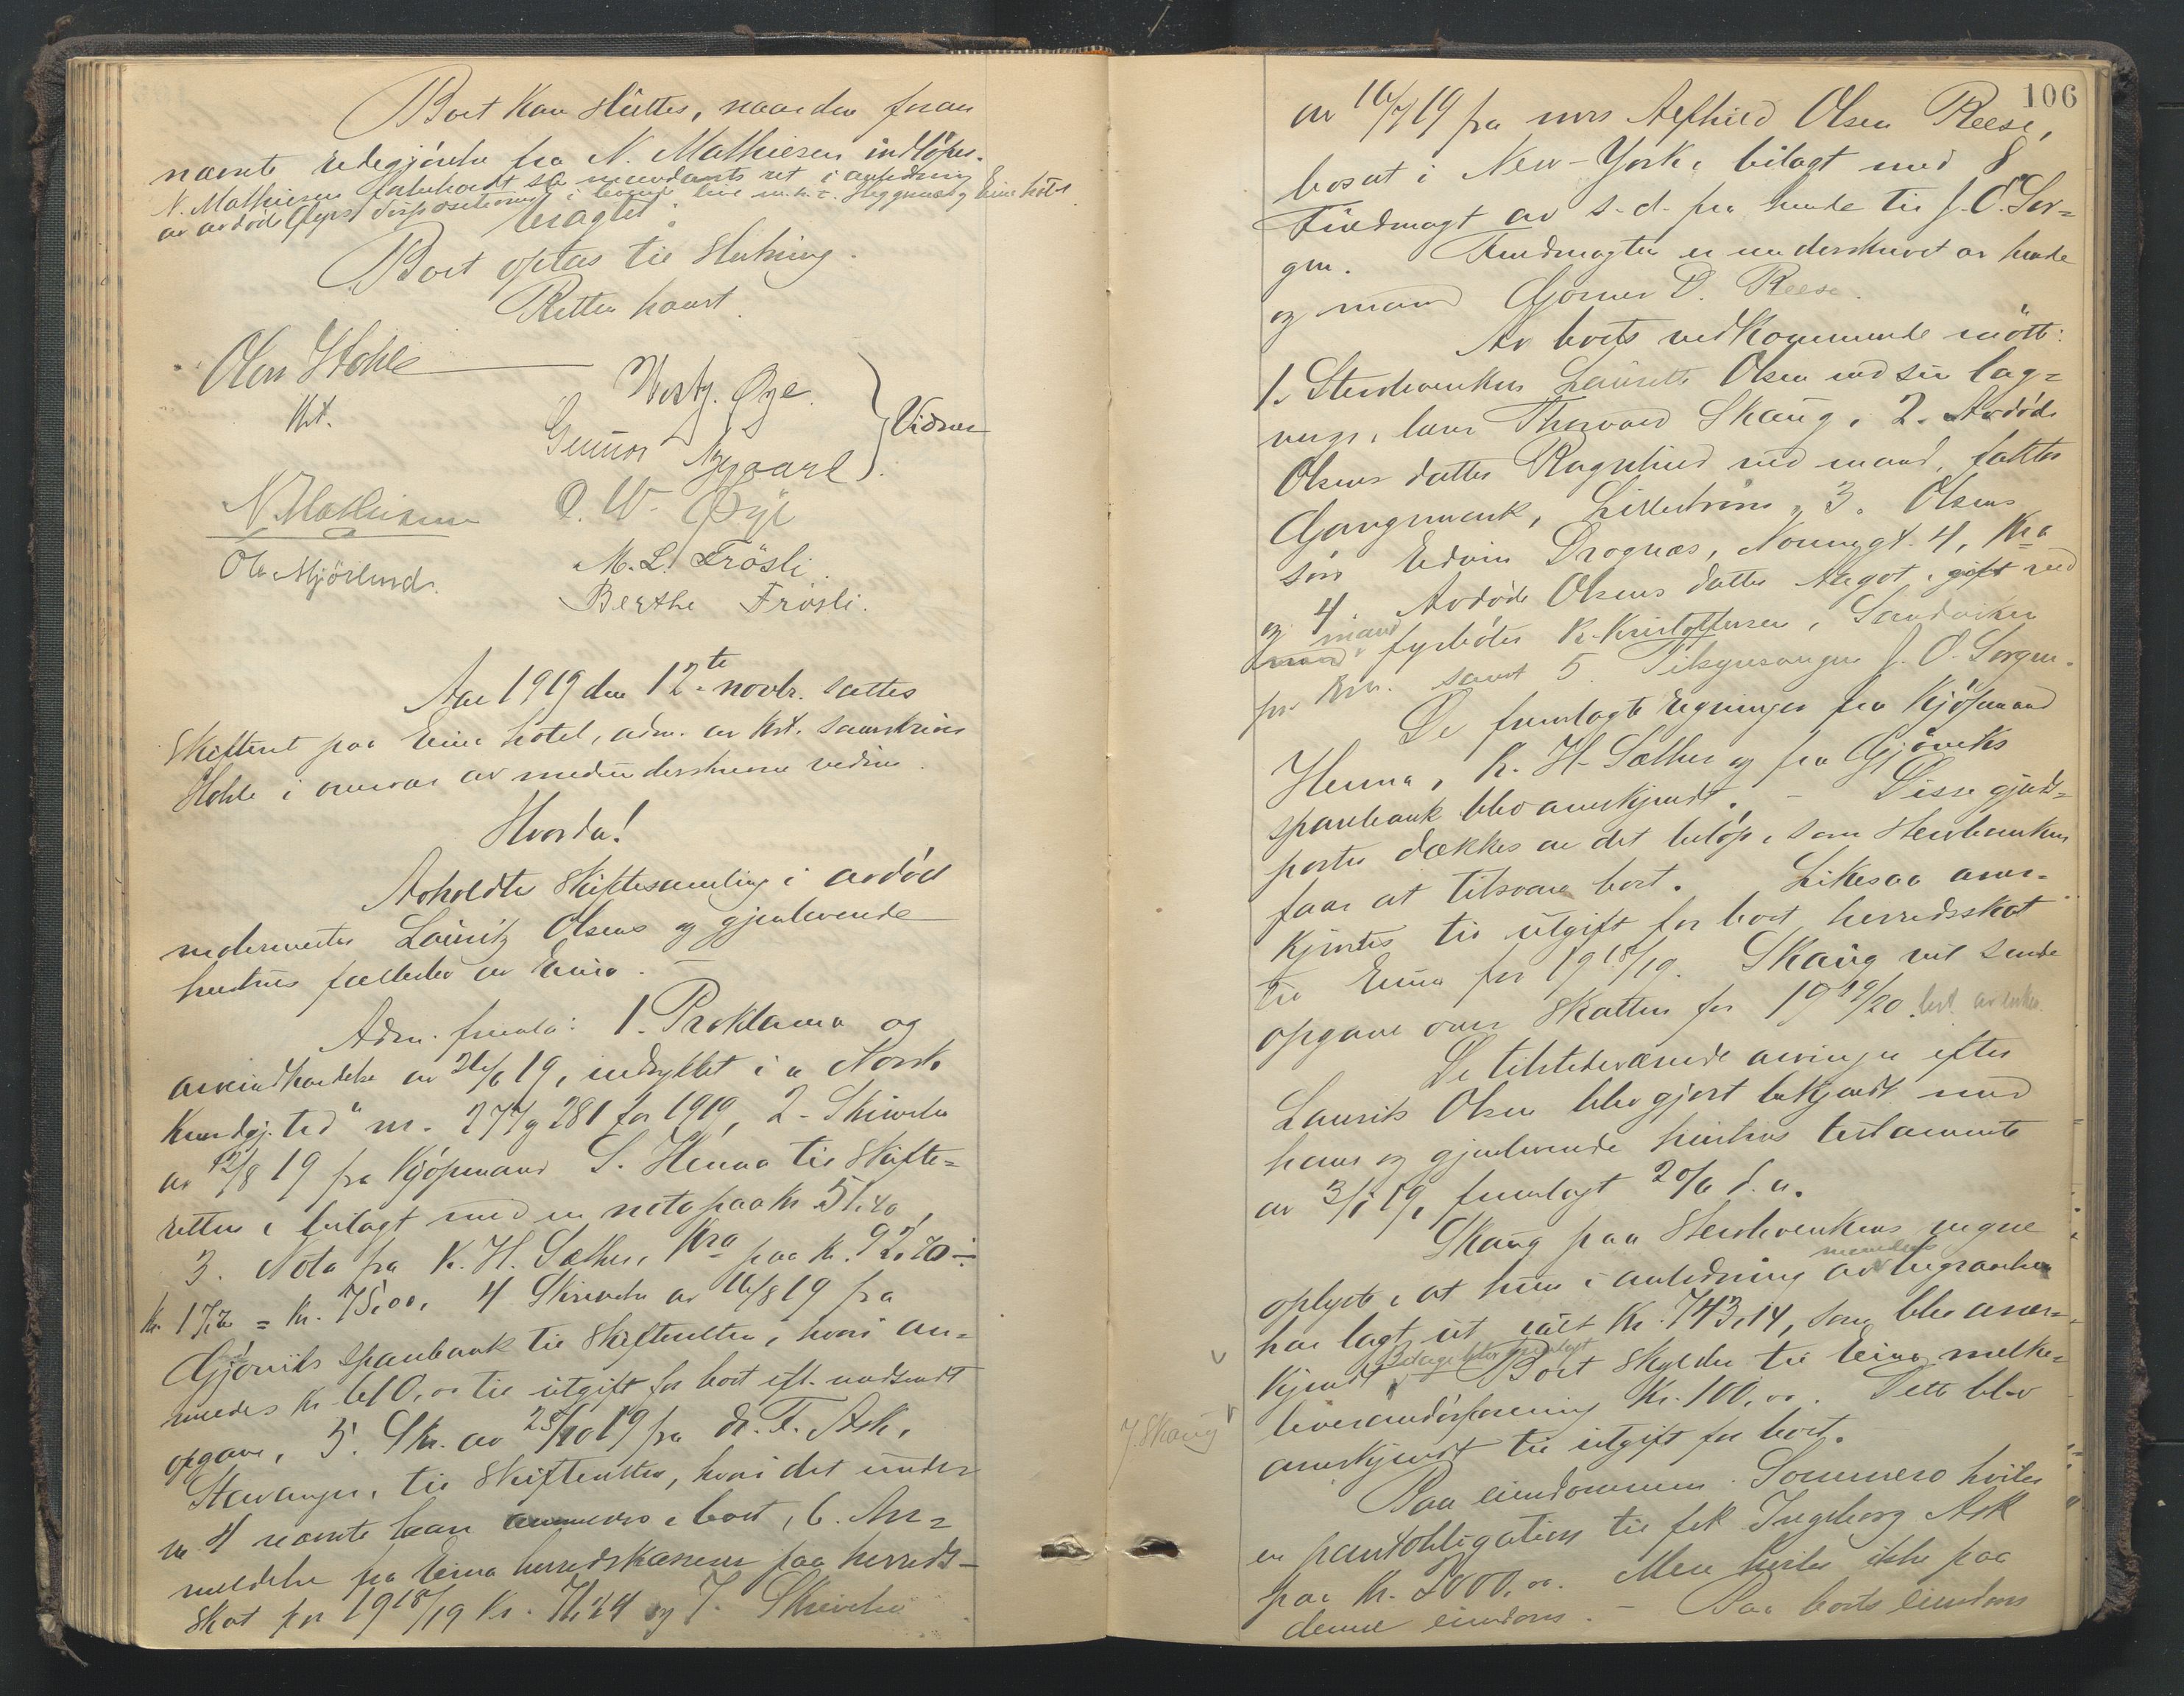 Boet kan sluttes, naar den foran
nævnte redegjørelse fra N. Mathiesen indløper.
N. Mathiesen forbeholdt sig mandants ret i anledning
av avdøde Øyes dispositioner i levende live m. h. t. Skyggenæs og Eina hotel
Vragtet:
Boet optas til slutning.
Retten hævet.
Olav Stohle
Kst.
Vidner
Gunnar Nygaard
N. Mathiesen
O. W. Øye
Ole Mjørlund.
M. L. Frøsli.
Berthe Frøsli.
Aar 1919 den 12te novbr. sattes
skifteret paa Eina hotel, adm. av kst. sorenskriver
Stohle i overvær av medunderskrevne vidner.
Hvorda!
Avholdtes skiftesamling i avdød
møllemester Lauritz Olsens og gjenlevende
hustrues fællesbo av Eina. –
Adm. freml: 1. Proklama og
arveindkaldelse av 26/6 19, indrykket i „Norsk
Kundgj. tid" nr. 277 og 281 for 1919, 2. Skrivelse
av 12/8 19 fra Kjøpmand S. Henna til skifte-
retten, bilagt med en nota paa kr 51.40,
3. Nota fra K. H. Sæther, Kra paa kr. 92.70 ÷
kr. 17.70 = kr. 75,00, 4 Skrivelse av 16/8 19 fra
Gjøviks sparebank til skifteretten, hvori an-
meldes kr. 610,00 til utgift for boet efl. medsendt
opgave, 5. Skr. av 25/10 19 fra dr. F. Ask,
Stavanger, til skifteretten, hvori det under
nr. 4 nævnte laan anmeldes i boet, 6. An-
meldelse fra Eina herredskasserer paa herreds-
skat for 1918/19 kr. 71,44 og 7. Skrivelse
106
av 16/7 19 fra mrs Alfhild Olsen Reese,
bosat i New-York, bilagt med 8
Fuldmagt av s. d. fra hende til J. O. Sor-
gen. Fuldmagten er underskrevet av hende
og mand Gjorner D. Reese.
Av boets vedkommende møtte:
1. Stervboenken Laurette Olsen med sin lag-
verge, lærer Thorvald Skaug, 2. Avdøde
Olsens datter Ragnhild med mand, faktor
Gangsmark, Lillestrøm, 3. Olsens
søn Edvin Drognæs, Normsgt. 4, Kra
og 4. Avdøde Olsens datter Aagot, gift med
mand fyrbøter K. Kristoffersen, Sandviken
pr Kra. samt 5. Tilsynsvergen J. O. Sorgen.
De fremlagte regninger fra Kjøpmand
Henna, K. H. Sæther og fra Gjøviks
sparebank blev anerkjendt. – Disse gjælds-
poster dækkes av det beløp, som stervboenken
faar at tilsvare boet. Likesaa aner-
kjendtes til utgift for boet herredsskat
til Eina for 1918/19. Skaug vil sende
opgave over skatten for 1919/20.
De tilstedeværende arvinger efter
Laurits Olsen blev gjort bekjendt med
hans og gjenlevende hustrus testamente
av 3/1 19, fremlagt 20/6 d. a.
Skaug paa stervboenkens vegne
oplyste, at hun i anledning av mandens begravelse
har lagt ut ialt kr. 743,14, som blev aner-
kjendt. Bilag blev fremlagt Boet skylder til Eina melke-
leverandørforening kr. 100,00. Dette blev
J. Skaug
anerkjendt til utgift for boet.
Paa eiendommen Sommero hviler
en pantobligation til frk Ingeborg Ask
paa kr. 2000,00. Mere hviler ikke paa
denne eiendom. – Paa boets eiendom